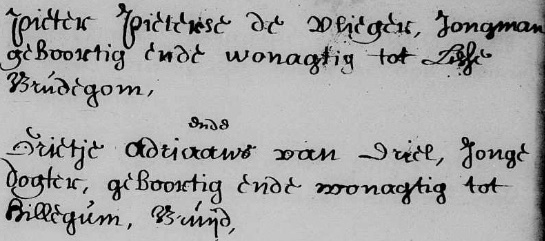 Pieter Pieterse de Vlieger, Jongman
geboortig ende wonagtig tot Lisse
Brúdegom,
ende
Trietje Adriaans van Driel, Jonge
dogter, geboortig ende wonagtig tot
Hillegúm, Brúijd,